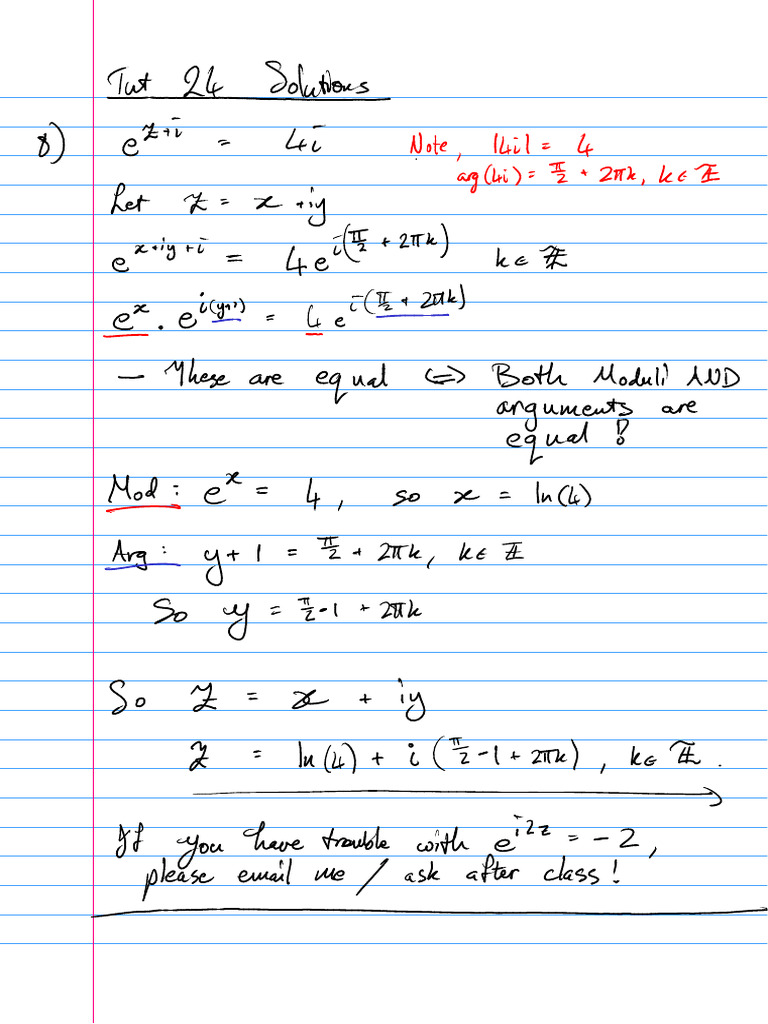 Tut 24 Solutions
8) e^{z+i} = 4i Note, |4i| = 4
arg(4i) = π/2 + 2πk, k ∈ ℤ
Let z = x + iy
e^{x+iy+i} = 4e^{i(π/2 + 2πk)} k ∈ ℤ
e^x . e^{i(y+1)} = 4 e^{i(π/2 + 2πk)}
— These are equal ⇔ Both Moduli AND
arguments are
equal !
Mod : e^x = 4, so x = ln(4)
Arg : y + 1 = π/2 + 2πk, k ∈ ℤ
So y = π/2 - 1 + 2πk
So z = x + iy
z = ln(4) + i (π/2 - 1 + 2πk), k ∈ ℤ.
If you have trouble with e^{i2z} = -2,
please email me / ask after class !